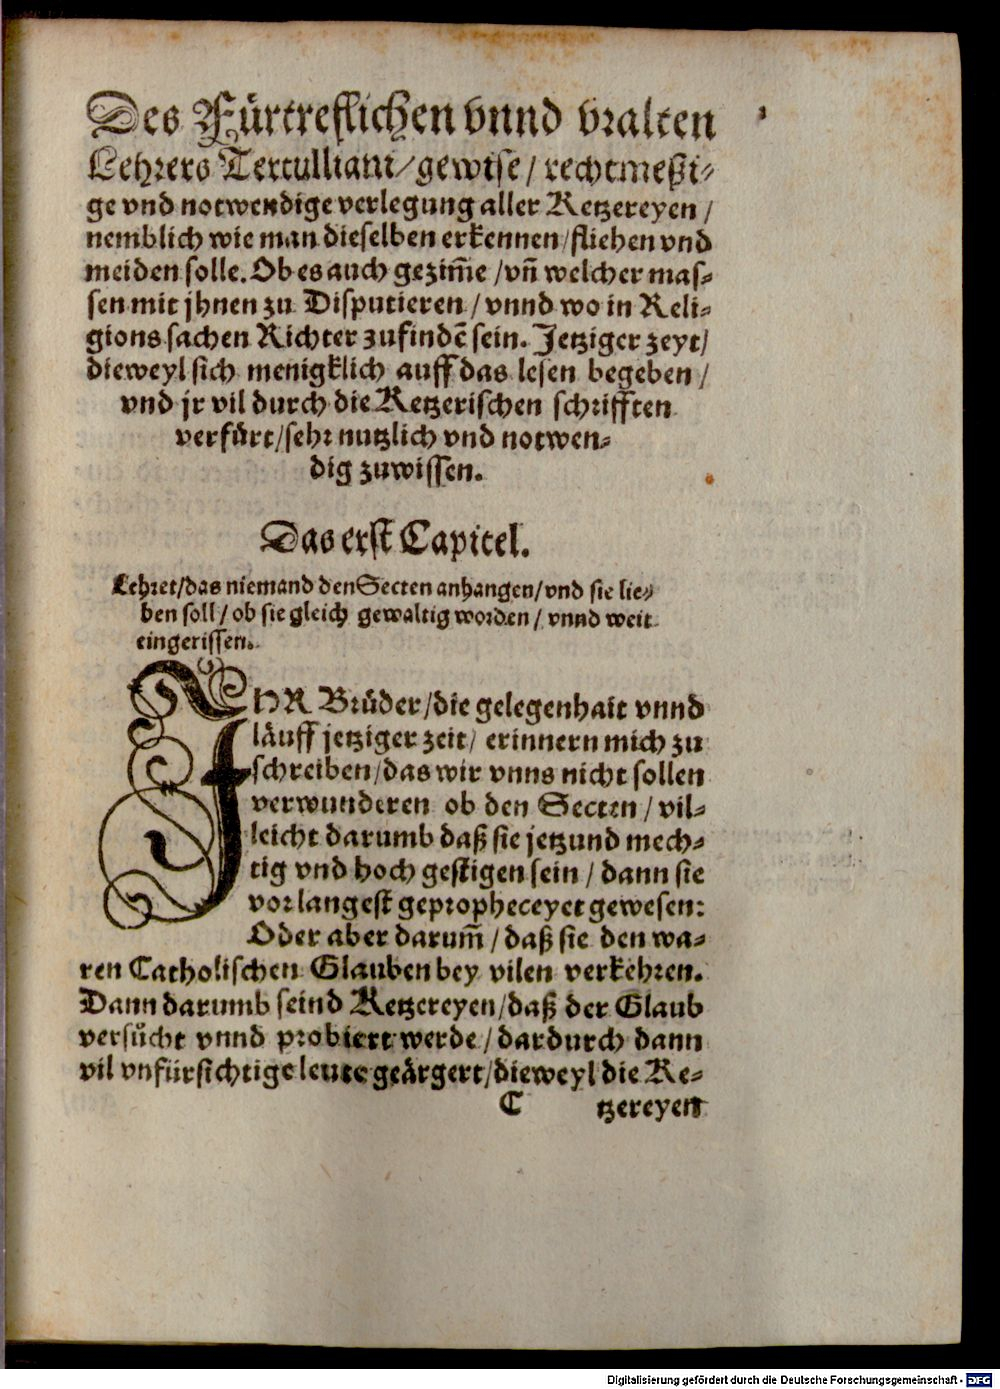 Des Fürtreflichen vnnd vralten 1
Lehrers Tertulliani / gewise / rechtmeßi-
ge vnd notwendige verlegung aller Ketzereyen /
nemblich wie man dieselben erkennen / fliehen vnd
meiden solle. Ob es auch gezim̃e / vñ welcher mas-
sen mit jhnen zu Disputieren / vnnd wo in Reli-
gions sachen Richter zufindẽ sein. Jetziger zeyt /
dieweyl sich menigklich auff das lesen begeben /
vnd jr vil durch die Ketzerischen schrifften
verfürt / sehr nutzlich vnd notwen-
dig zuwissen.
Das erst Capitel.
Lehret / das niemand den Secten anhangen / vnd sie lie-
ben soll / ob sie gleich gewaltig worden / vnnd weit
eingerissen.
IHR Brüder / die gelegenhait vnnd
läuff jetziger zeit / erinnern mich zu
schreiben / das wir vnns nicht sollen
verwunderen ob den Secten / vil-
leicht darumb daß sie jetzund mech-
tig vnd hoch gestigen sein / dann sie
vorlangest gepropheceyet gewesen:
Oder aber darum̃ / daß sie den wa-
ren Catholischen Glauben bey vilen verkehren.
Dann darumb seind Ketzereyen / daß der Glaub
versůcht vnnd probiert werde / dardurch dann
vil vnfürsichtige leute geärgert / dieweyl die Ke-
C tzereyen
Digitalisierung gefördert durch die Deutsche Forschungsgemeinschaft - DFG